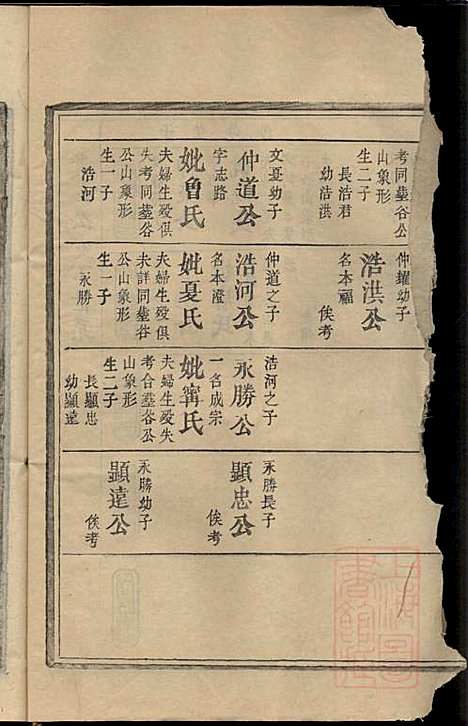 考同墓谷公
山象形
生二子
長浩君
幼浩洪
文夏幼子
仲道公
字志路
妣魯氏
夫婦生歿俱
失考同墓谷
公山象形
生一子
浩河
仲耀幼子
浩洪公
名本福
俟考
仲道之子
浩河公
名本澄
妣夏氏
夫婦生歿俱
未詳同墓谷
公山象形
生一子
永勝
浩河之子
永勝公
一名成宗
妣甯氏
夫婦生歿失
考合墓谷公
山象形
生二子
長顯忠
幼顯遠
永勝長子
顯忠公
俟考
永勝幼子
顯遠公
俟考
上海圖
書館藏